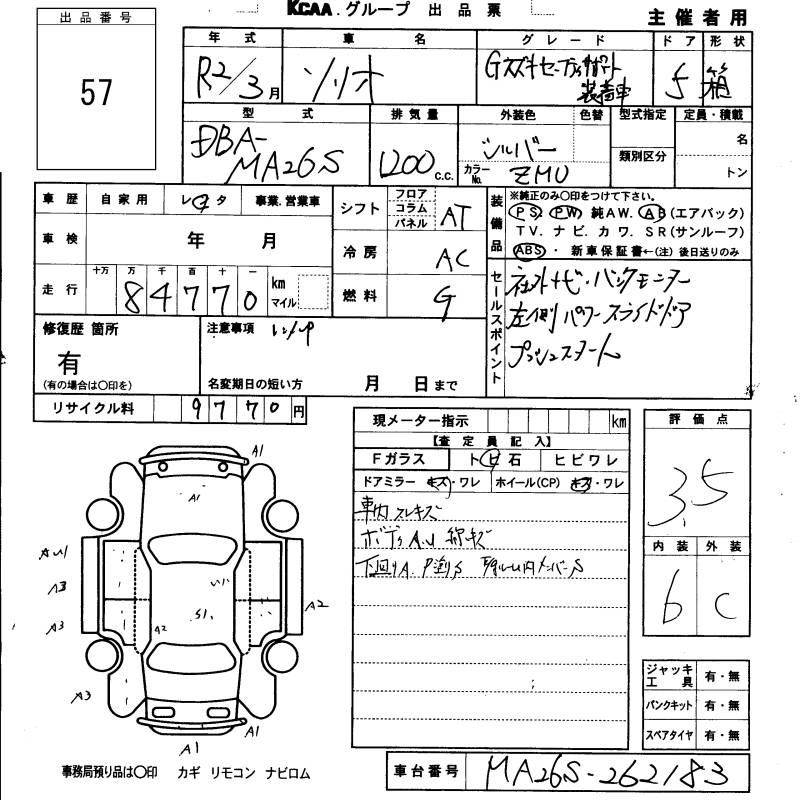 KCAA.グループ 出品票
主催者用
出品番号
57
年式 車名 グレード ドア 形状
R2/3月 ソリオ Gスズキセーフティサポート 5 箱
装着車
型式 排気量 外装色 色替 型式指定 定員・積載
DBA-
MA26S 1200 c.c. シルバー 名
カラーNo. ZMU 類別区分 トン
車歴 自家用 レンタ 事業.営業車
シフト フロア コラム パネル AT
装備品 ※純正のみ〇印をつけて下さい。
PS PW 純AW. AB(エアバック)
TV. ナビ. カワ. SR(サンルーフ)
ABS ・新車保証書←(注)後日送りのみ
車検 年 月
冷房 AC
走行 十万 万 千 百 十 一
84770 km マイル
燃料 G
セールスポイント 社外ナビ・バックモニター
左側パワースライドドア
プッシュスタート
修復歴 箇所
有
(有の場合は〇印を)
注意事項
名変期日の短い方 月 日まで
リサイクル料 9770円
現メーター指示 km
【査定員記入】
Fガラス ト ビ 石 ヒビワレ
ドアミラー キズ・ワレ ホイール(CP) キズ・ワレ
車内スレキズ
ボディA.U 線キズ
下回りA. P塗S
評価点
3.5
内装 外装
6 C
ジャッキ 工具 有・無
パンクキット 有・無
スペアタイヤ 有・無
A1
A1
AU1
A3
A3
A2
S1.
A2
A3
A1
A1
事務局預り品は〇印 カギ リモコン ナビロム
車台番号 MA26S-262183